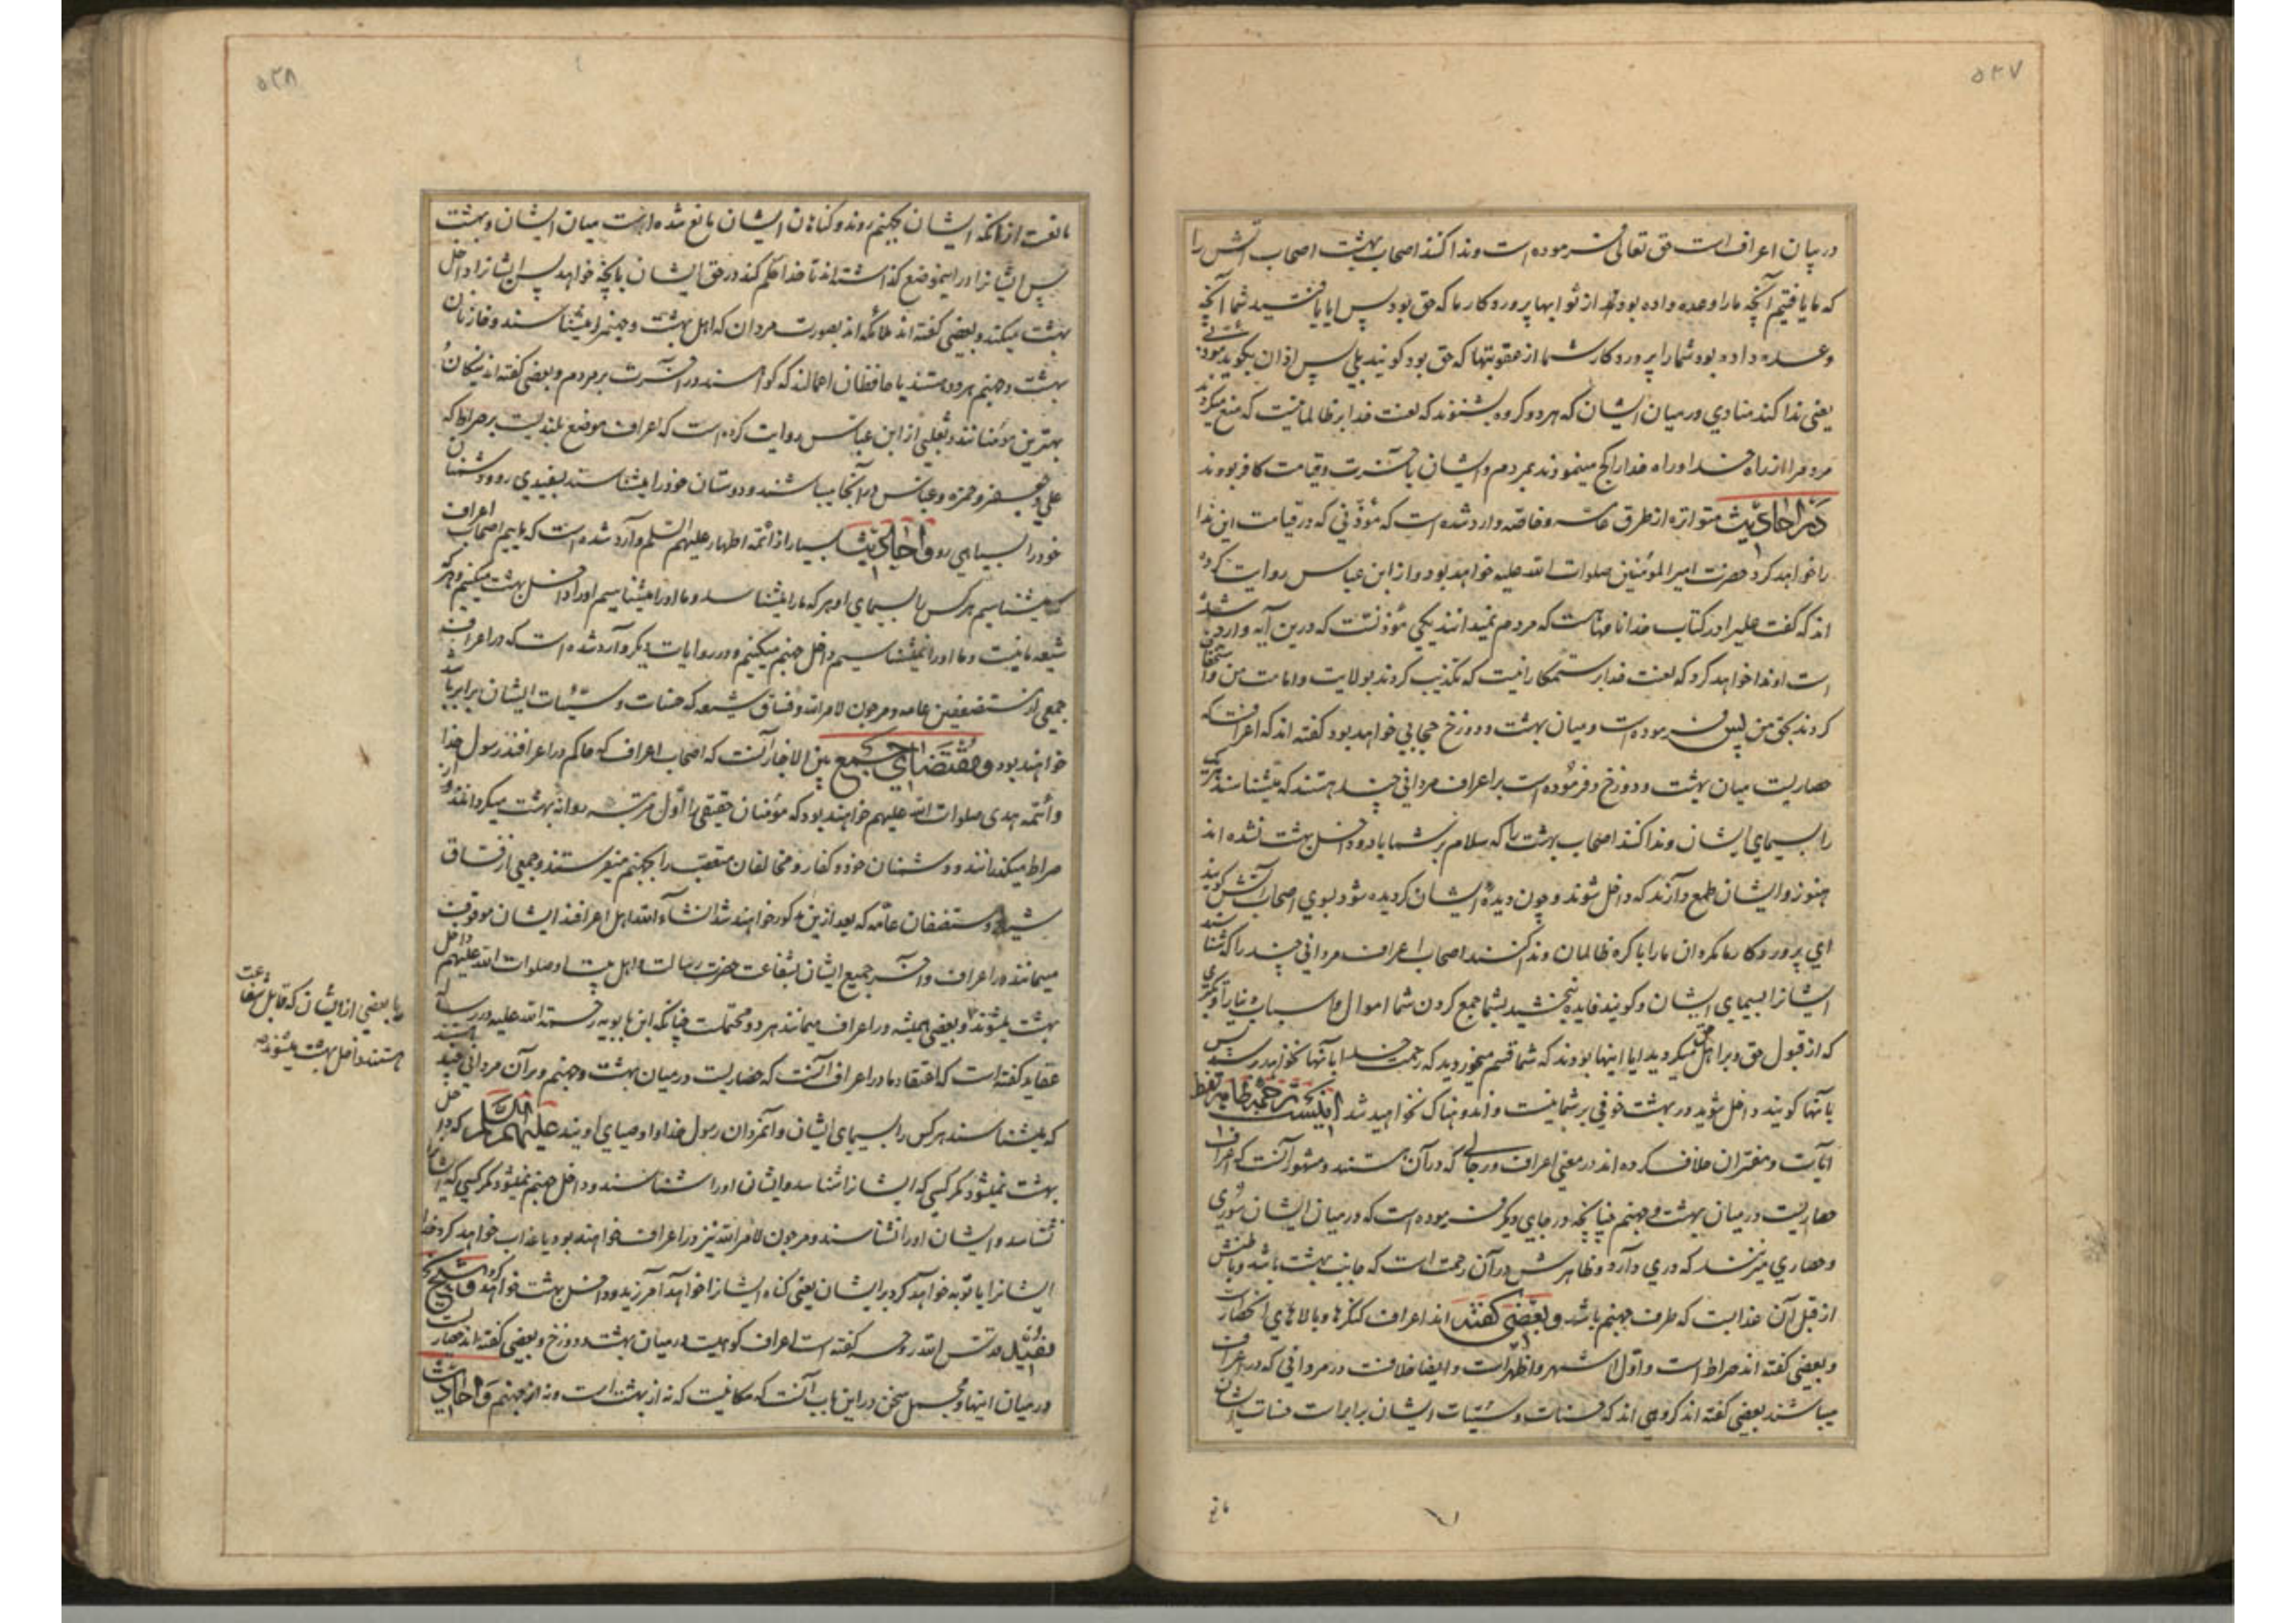 ۵۳۷
در بیان اعراف است حق تعالی فرموده است و ندا کنند اصحاب بهشت اصحاب آتش را
که ما یافتیم آنچه ما را وعده داده بود از ثوابها پروردگار ما که حق بود پس ایا یافتید شما آنچه
وعده داده بود شما را پروردگار شما از عقوبتها که حق بود کویند بلی پس اذان بکوید مؤذنی
یعنی ندا کند منادی در میان ایشان که هر دو کروه بشنوند که لعنت خدا بر ظالمانیست که منع میکردند
مردم را از راه خدا و راه خدا را کج مینمودند بمردم و ایشان باخرت و قیامت کافر بودند
در احادیث متواتره از طرق عامه و خاصه وارد شده است که مؤذنی که در قیامت این ندا
را خواهد کرد حضرت امیر المؤمنین صلوات الله علیه خواهد بود و از ابن عباس روایت کرده
اند که گفت علی را در کتاب خدا نامهاست که مردم نمیدانند یکی مؤذنست که درین آیه وارد شده
است او ندا خواهد کرد که لعنت خدا بر ستمکارانیست که تکذیب کردند بولایت و امامت من و استخفاف
کردند بحق من پس فرموده است و میان بهشت و دوزخ حجابی خواهد بود کفته اند که اعرافست که
حصاریست میان بهشت و دوزخ و فرموده است بر اعراف مردانی چند هستند که میشناسند هر یک
را بسیمای ایشان و ندا کنند اصحاب بهشت را که سلام بر شما باد و داخل بهشت نشده اند
هنوز و ایشان طمع دارند که داخل شوند و چون دیدهٔ ایشان کردیده شود بسوی اصحاب آتش کویند
ای پروردکار ما مکردان ما را با کروه ظالمان و ندا کنند اصحاب اعراف مردانی چند را که شناسند
ایشانرا بسیمای ایشان و کویند فایده نبخشید بشما جمع کردن شما اموال و اسباب دنیا را و تکبری
که از قبول حق و بر اهل حق میکردید ایا اینها بودند که شما قسم میخوردید که رحمت خدا بآنها نخواهد رسید پس
بآنها کویند داخل شوید در بهشت خوفی بر شما نیست و اندوهناک نخواهید شد اینست ترجمه ظاهر لفظ
آیات و مفسران خلاف کرده اند در معنی اعراف و رجالی که در آن هستند و مشهور آنست که اعراف
حصاریست در میان بهشت و جهنم چنانکه در جای دیگر فرموده است که در میان ایشان سوری
و حصاری میزنند که دری دارد و ظاهرش در آن رحمت است که جانب بهشت باشد و باطنش
از قبل آن عذابست که طرف جهنم باشد و بعضی گفته اند اعراف کنگرها و بالاهای آن حصار است
و بعضی کفته اند صراط است و اول اشهر و اظهر است و ایضا خلافست در مردانی که در اعراف
میباشند بعضی کفته اند کروهی اند که حسنات و سیئات ایشان برابر است حسنات ایشان
مانع
۵۳۸
مانعست از آنکه ایشان بجهنم روند و کناهان ایشان مانع شده است میان ایشان و بهشت
پس ایشانرا در اینموضع کذاشته اند تا خدا حکم کند در حق ایشان بآنچه خواهد پس ایشانرا داخل
بهشت میکند و بعضی کفته اند ملائکه اند بصورت مردان که اهل بهشت و جهنم را میشناسند و خازنان
بهشت و جهنم هر دو هستند یا حافظان اعمالند که کواهند در آخرت بر مردم و بعضی کفته اند نیکان و
بهترین مؤمنانند و ثعلبی از ابن عباس روایت کرده است که اعراف موضع بلندیست بر صراط که
علی و جعفر و حمزه و عباس در آنجا میباشند و دوستان خود را میشناسند بسفیدی رو و دشمنان
خود را بسیاهی رو و احادیث بسیار از ائمه اطهار علیهم السلم وارد شده است که ماییم اصحاب اعراف
که میشناسیم هر کس را بسیمای او هر که ما را میشناسد و ما او را میشناسیم او را داخل بهشت میکنیم و هر که
شیعه ما نیست و ما او را نمیشناسیم داخل جهنم میکنیم و در روایات دیگر وارد شده است که در اعراف
جمعی از مستضعفین عامه و مرجون لامر الله و فساق شیعه که حسنات و سیئات ایشان برابر باشد
خواهند بود و مقتضای جمع بین الاخبار آنست که اصحاب اعراف که حاکم در اعرافند رسول خدا
و ائمه هدی صلوات الله علیهم خواهند بود که مؤمنان حقیقی را اول مرتبه روانه بهشت میکردانند و از
صراط میکذرانند و دشمنان خود و کفار و مخالفان متعصب را بجهنم میفرستند و جمعی از فساق
شیعه و مستضعفان عامه که بعد ازین مذکور خواهند شد انشاء الله اهل اعرافند ایشان موقوف
میمانند در اعراف و آخر جمیع ایشان بشفاعت حضرت رسالت و اهل بیت او صلوات الله علیهم داخل
بهشت میشوند و بعضی همیشه در اعراف میمانند هر دو محتملست چنانکه ابن بابویه رحمة الله علیه در رساله
عقاید کفته است که اعتقاد ما در اعراف آنست که حصاریست در میان بهشت و جهنم و بر آن مردانی چند هستند
که میشناسند هر کس را بسیمای ایشان و آنمردان رسول خدا و اوصیای اویند علیهم السلم که داخل
بهشت نمیشود مکر کسی که ایشانرا شناسد و ایشان او را شناسند و داخل جهنم نمیشود مکر کسی که ایشانرا
نشناسد و ایشان او را نشناسند و مرجون لامر الله نیز در اعراف خواهند بود یا عذاب خواهد کرد خدا
ایشانرا یا توبه خواهد کرد بر ایشان یعنی کناه ایشانرا خواهد آمرزید و داخل بهشت خواهد کرد و شیخ
مفید قدس الله روحه کفته است اعراف کوهیست در میان بهشت و دوزخ و بعضی کفته اند حصاریست
در میان اینها و مجمل سخن در این باب آنست که مکانیست که نه از بهشت است و نه از جهنم و احادیث
یا بعضی از ایشان که قابل شفاعت
هستند داخل بهشت میشوند